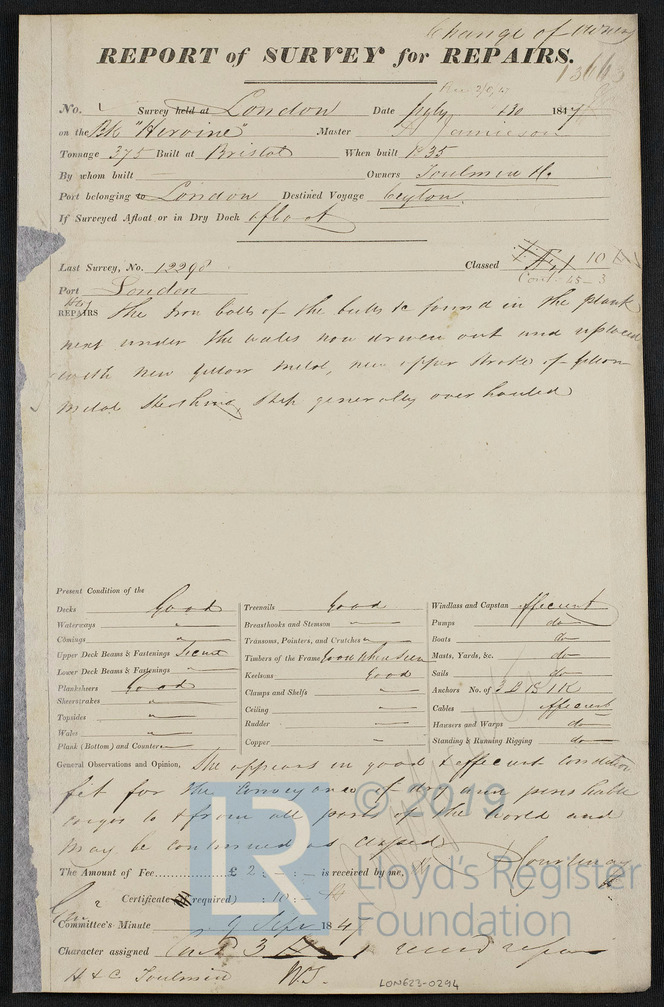 Change of Owners
REPORT of SURVEY for REPAIRS.
13643
No. Survey held at London Date July 130 1847
on the Bk "Heroine" Master Jamieson
Tonnage 375 Built at Bristol When built 1835
By whom built — Owners Toulmin & Co.
Port belonging to London Destined Voyage Ceylon.
If Surveyed Afloat or in Dry Dock afloat
Last Survey, No. 12298 Classed 10
Port London Cont. 45-3
REPAIRS The Iron bolts of the butts &c found in the plank
next under the wales now driven out and replaced
with new yellow metal, new upper strakes of yellow
metal sheathing, ship generally overhauled
Present Condition of the
Decks Good Treenails Good Windlass and Capstan efficient
Waterways " Breasthooks and Stemson " Pumps do
Comings " Transoms, Pointers, and Crutches " Boats do
Upper Deck Beams & Fastenings Secure Timbers of the Frame Good when seen Masts, Yards, &c. do
Lower Deck Beams & Fastenings " Keelsons Good Sails do
Planksheers Good Clamps and Shelfs " Anchors No. of 3 B 1 S 1 K
Sheerstrakes " Ceiling " Cables efficient
Topsides " Rudder " Hawsers and Warps do
Wales " Copper " Standing & Running Rigging do
Plank (Bottom) and Counter "
General Observations and Opinion, She appears in good & efficient condition
fit for the conveyance of dry and perishable
cargo to & from all parts of the World and
may be continued as classed
The Amount of Fee £ 2 : - : - is received by me,
Certificate (if required) : 10 : - Courtenay
Committee's Minute 9 Sepr 1847
Character assigned
H & C Toulmin
LON623-0294
LR
© 2019
Lloyd's Register
Foundation